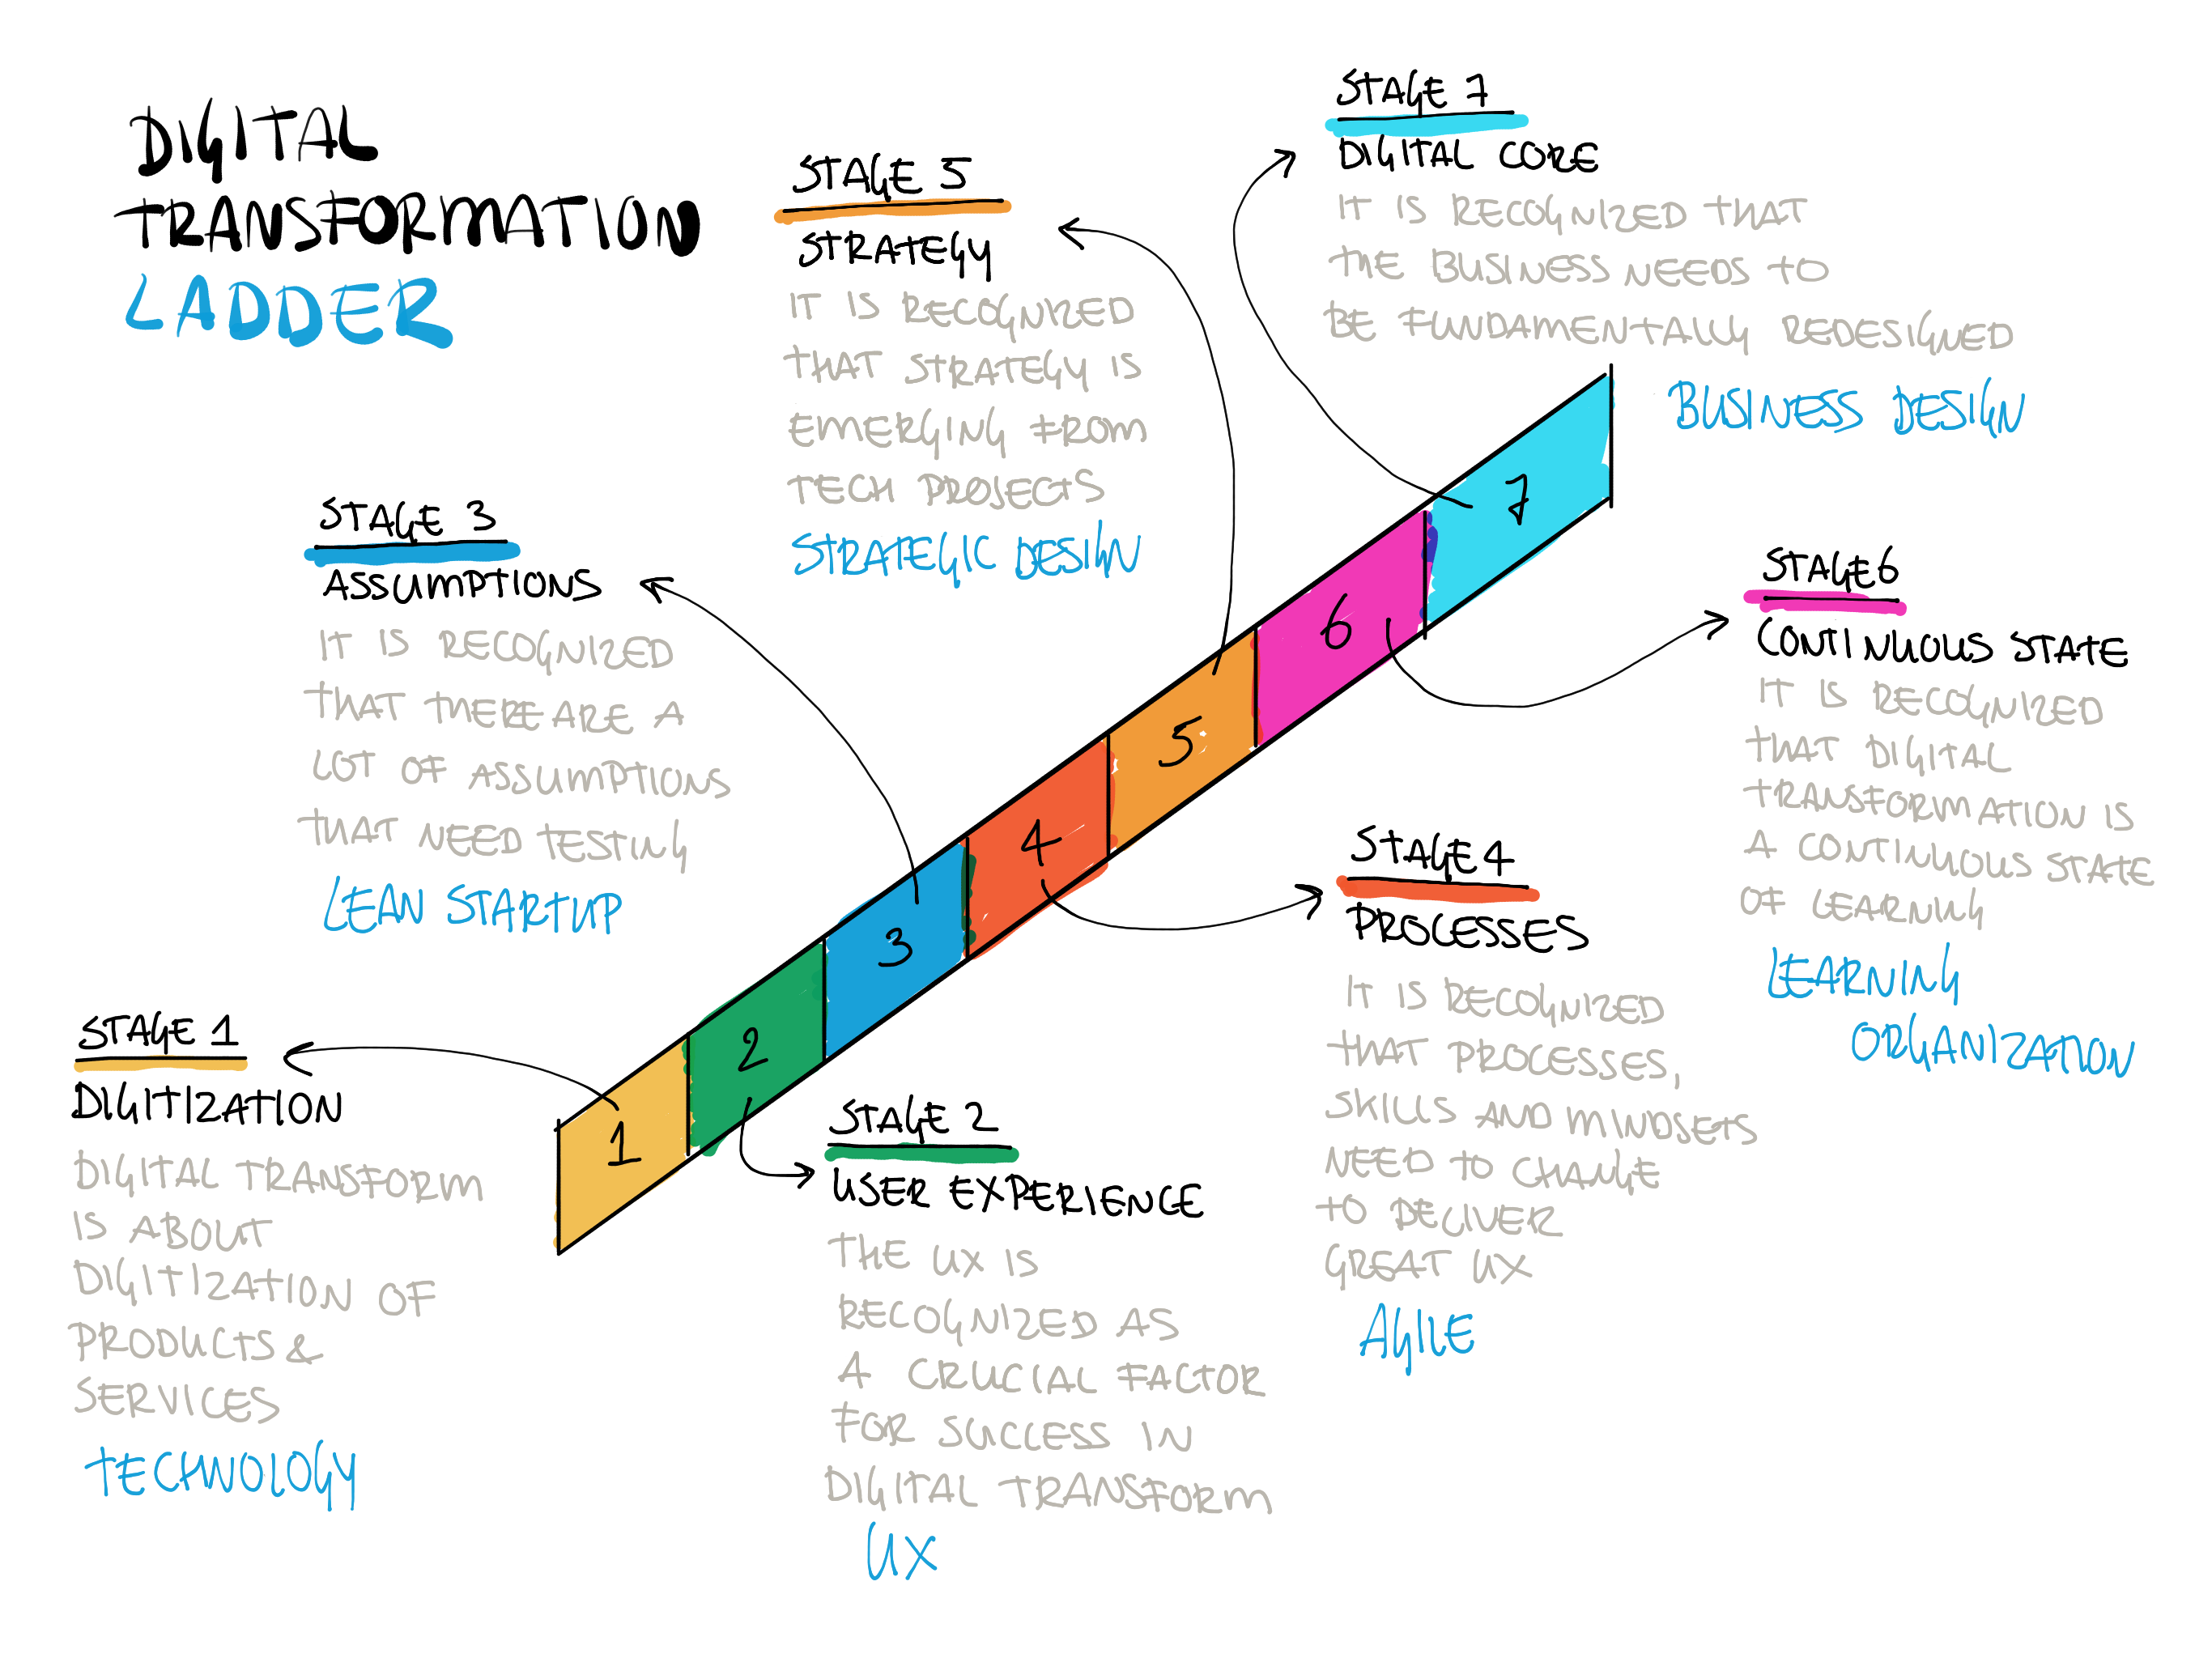 DIGITAL
TRANSFORMATION
LADDER
STAGE 1
DIGITIZATION
DIGITAL TRANSFORM
IS ABOUT
DIGITIZATION OF
PRODUCTS &
SERVICES
TECHNOLOGY
STAGE 2
USER EXPERIENCE
THE UX IS
RECOGNIZED AS
A CRUCIAL FACTOR
FOR SUCCESS IN
DIGITAL TRANSFORM
UX
STAGE 3
ASSUMPTIONS
IT IS RECOGNIZED
THAT THERE ARE A
LOT OF ASSUMPTIONS
THAT NEED TESTING
LEAN STARTUP
STAGE 4
PROCESSES
IT IS RECOGNIZED
THAT PROCESSES,
SKILLS AND MINDSETS
NEED TO CHANGE
TO DELIVER
GREAT UX
AGILE
STAGE 5
STRATEGY
IT IS RECOGNIZED
THAT STRATEGY IS
EMERGING FROM
TECH PROJECTS
STRATEGIC DESIGN
STAGE 6
CONTINUOUS STATE
IT IS RECOGNIZED
THAT DIGITAL
TRANSFORMATION IS
A CONTINUOUS STATE
OF LEARNING
LEARNING
ORGANIZATION
STAGE 7
DIGITAL CORE
IT IS RECOGNIZED THAT
THE BUSINESS NEEDS TO
BE FUNDAMENTALLY REDESIGNED
BUSINESS DESIGN
1
2
3
4
5
6
7